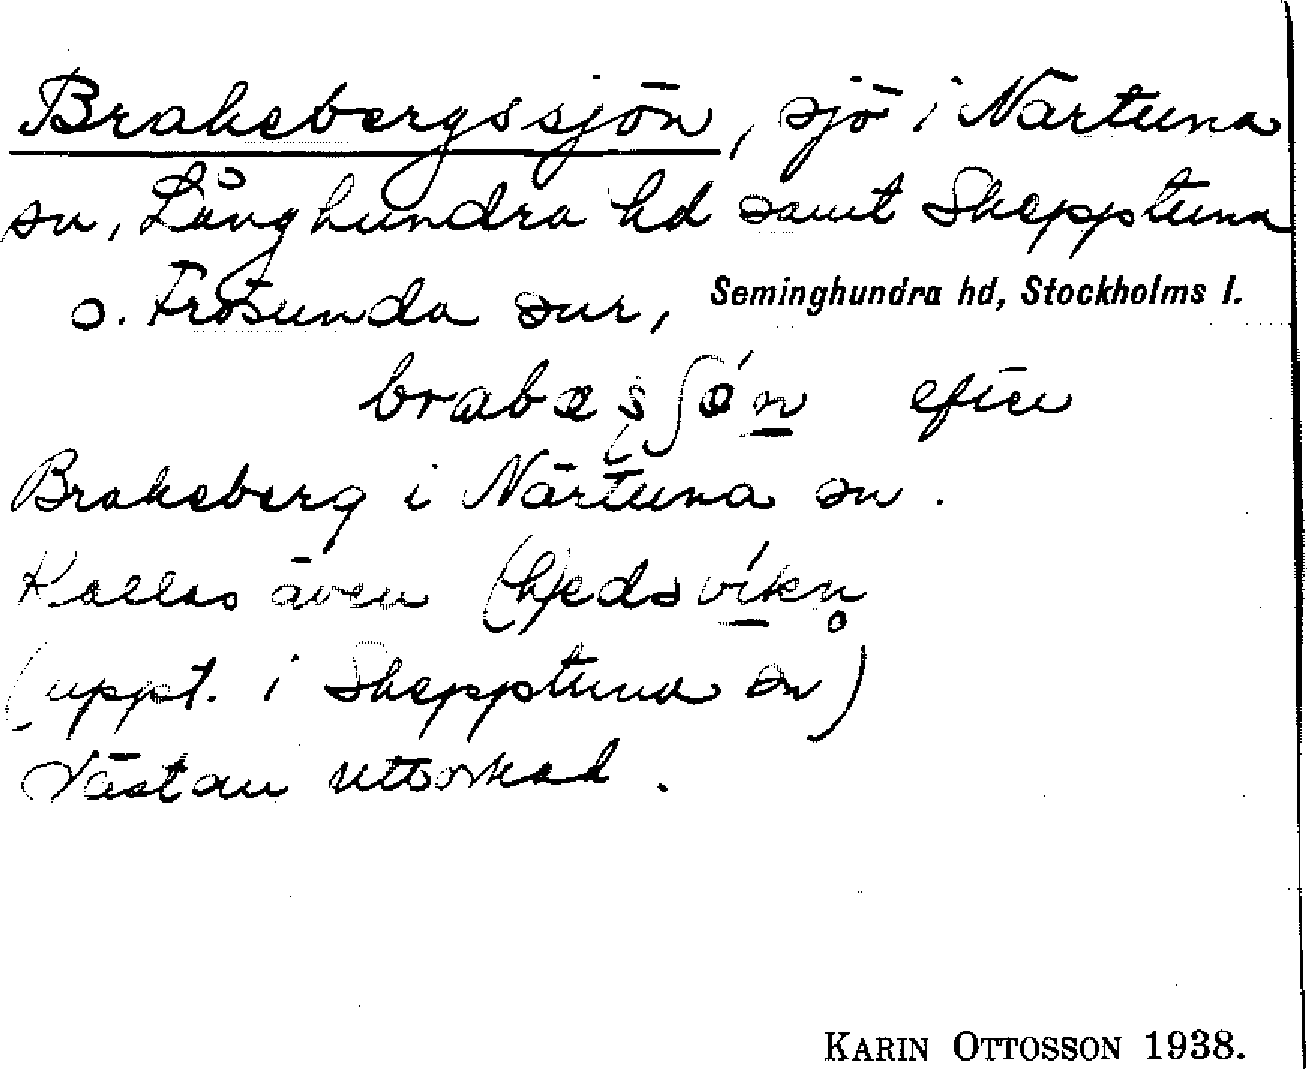 Brakebergssjön, sjö i Närtuna
sn, Långhundra hd samt Skepptuna
o. Frösunda snr, Seminghundra hd, Stockholms l.
efter
Brakeberg i Närtuna sn.
Kallas även (h)edsvíkn̥
(uppt. i Skepptuna sn)
Nästan uttorkad.
KARIN OTTOSSON 1938.